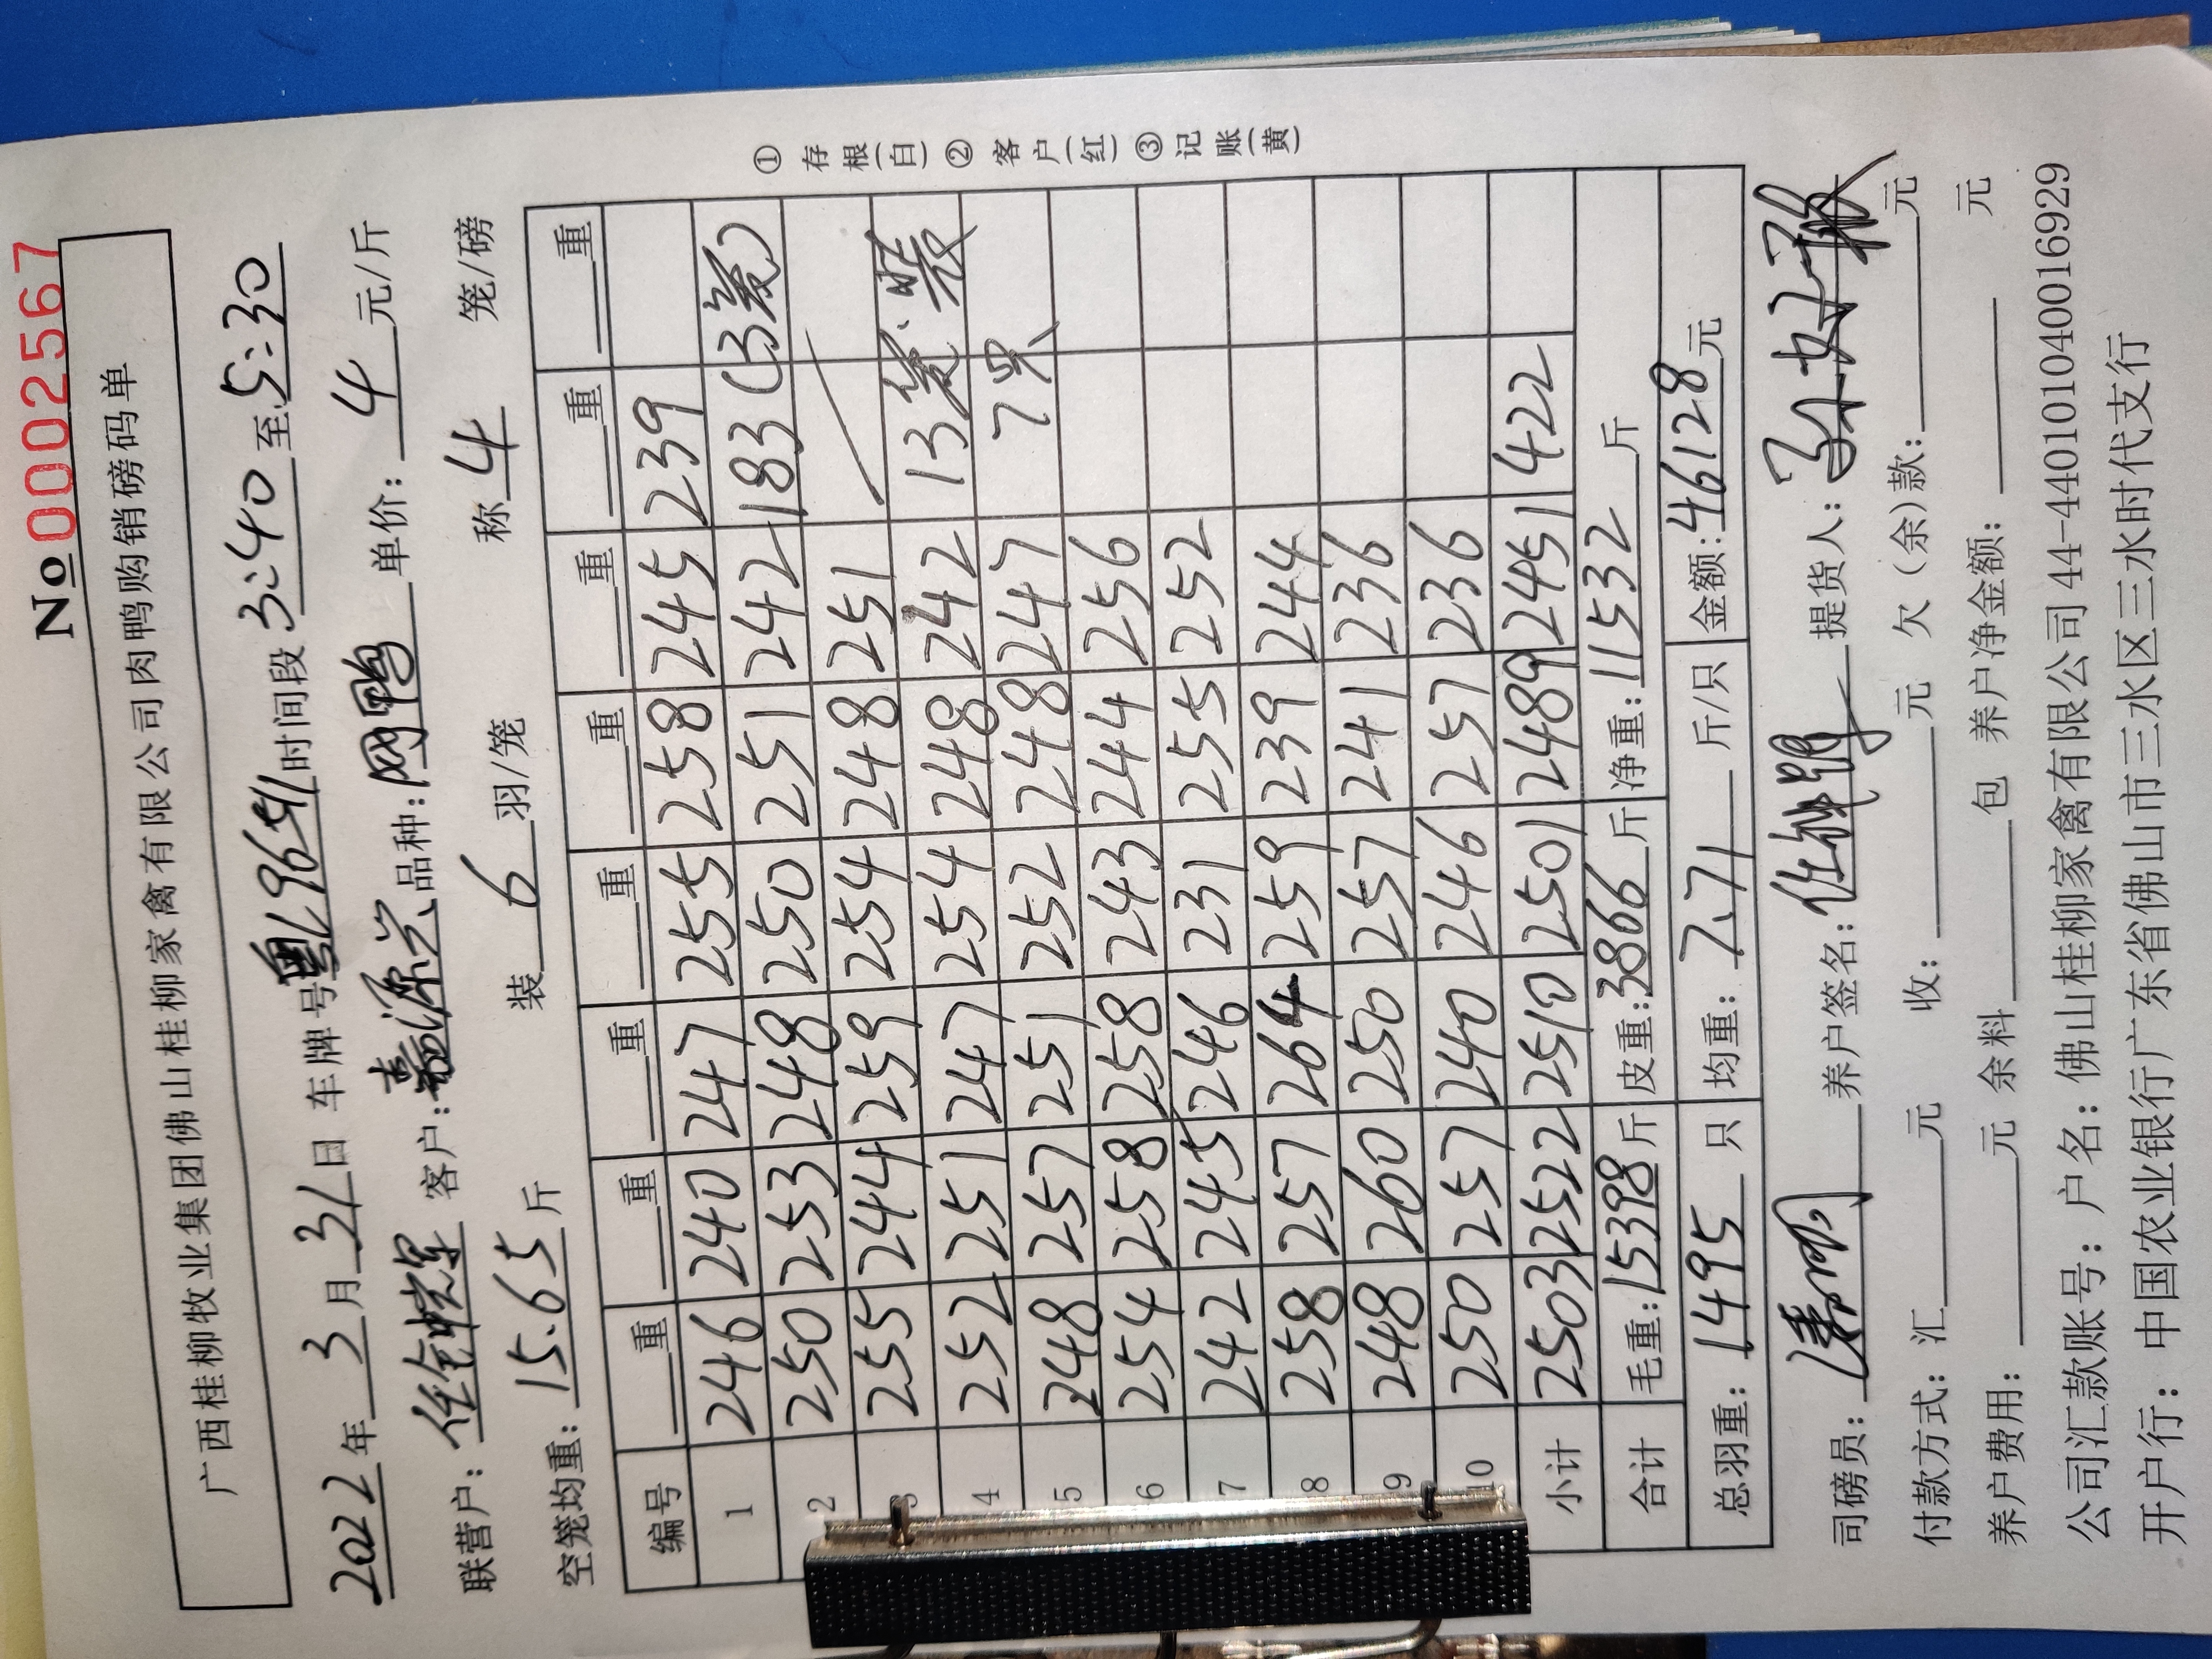 №0002567
广西桂柳牧业集团佛山桂柳家禽有限公司肉鸭购销磅码单
2022年3月31日 车牌号粤 时间段3:40至5:30
联营户: 客户:嘉源兴 品种:网鸭 单价:4元/斤
空笼均重:15.65斤 装6羽/笼 称4笼/磅
编号 重 重 重 重 重 重 重 重
1 246 240 247 255 258 245 239
2 250 253 248 250 251 242 183(3笼)
3 255 244 259 254 248 251
4 252 251 247 254 248 242 13笼.装
5 248 257 251 252 248 247 7只
6 254 258 258 243 244 256
7 242 245 246 231 255 252
8 258 257 264 259 239 244
9 248 260 250 257 241 236
10 250 257 240 246 257 236
小计 2503 2522 2510 2501 2489 2451 422
合计 毛重:15398斤 皮重:3866斤 净重:11532斤
总羽重:1495只 均重:7.71斤/只 金额:46128元
司磅员: 养户签名: 提货人:
付款方式:汇 元 收: 元 欠(余)款: 元
养户费用: 元 余料 包 养户净金额: 元
公司汇款账号:户名:佛山桂柳家禽有限公司44-440101040016929
开户行:中国农业银行广东省佛山市三水区三水时代支行
①存根(白)②客户(红)③记账(黄)